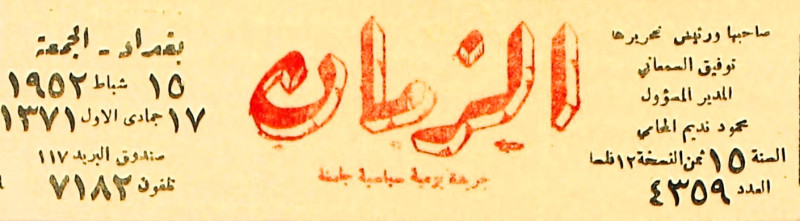 صاحبها ورئيس تحريرها
توفيق السمعاني
المدير المسؤول
محمود نديم المحامي
السنة ١٥ ثمن النسخة ١٢ فلسا
العدد ٤٣٥٩
الزمان
جريدة يومية سياسية جامعة
بغداد - الجمعة
١٥ شباط ١٩٥٢
١٧ جمادى الاول ١٣٧١
صندوق البريد ١١٧
تلفون ٧١٨٢